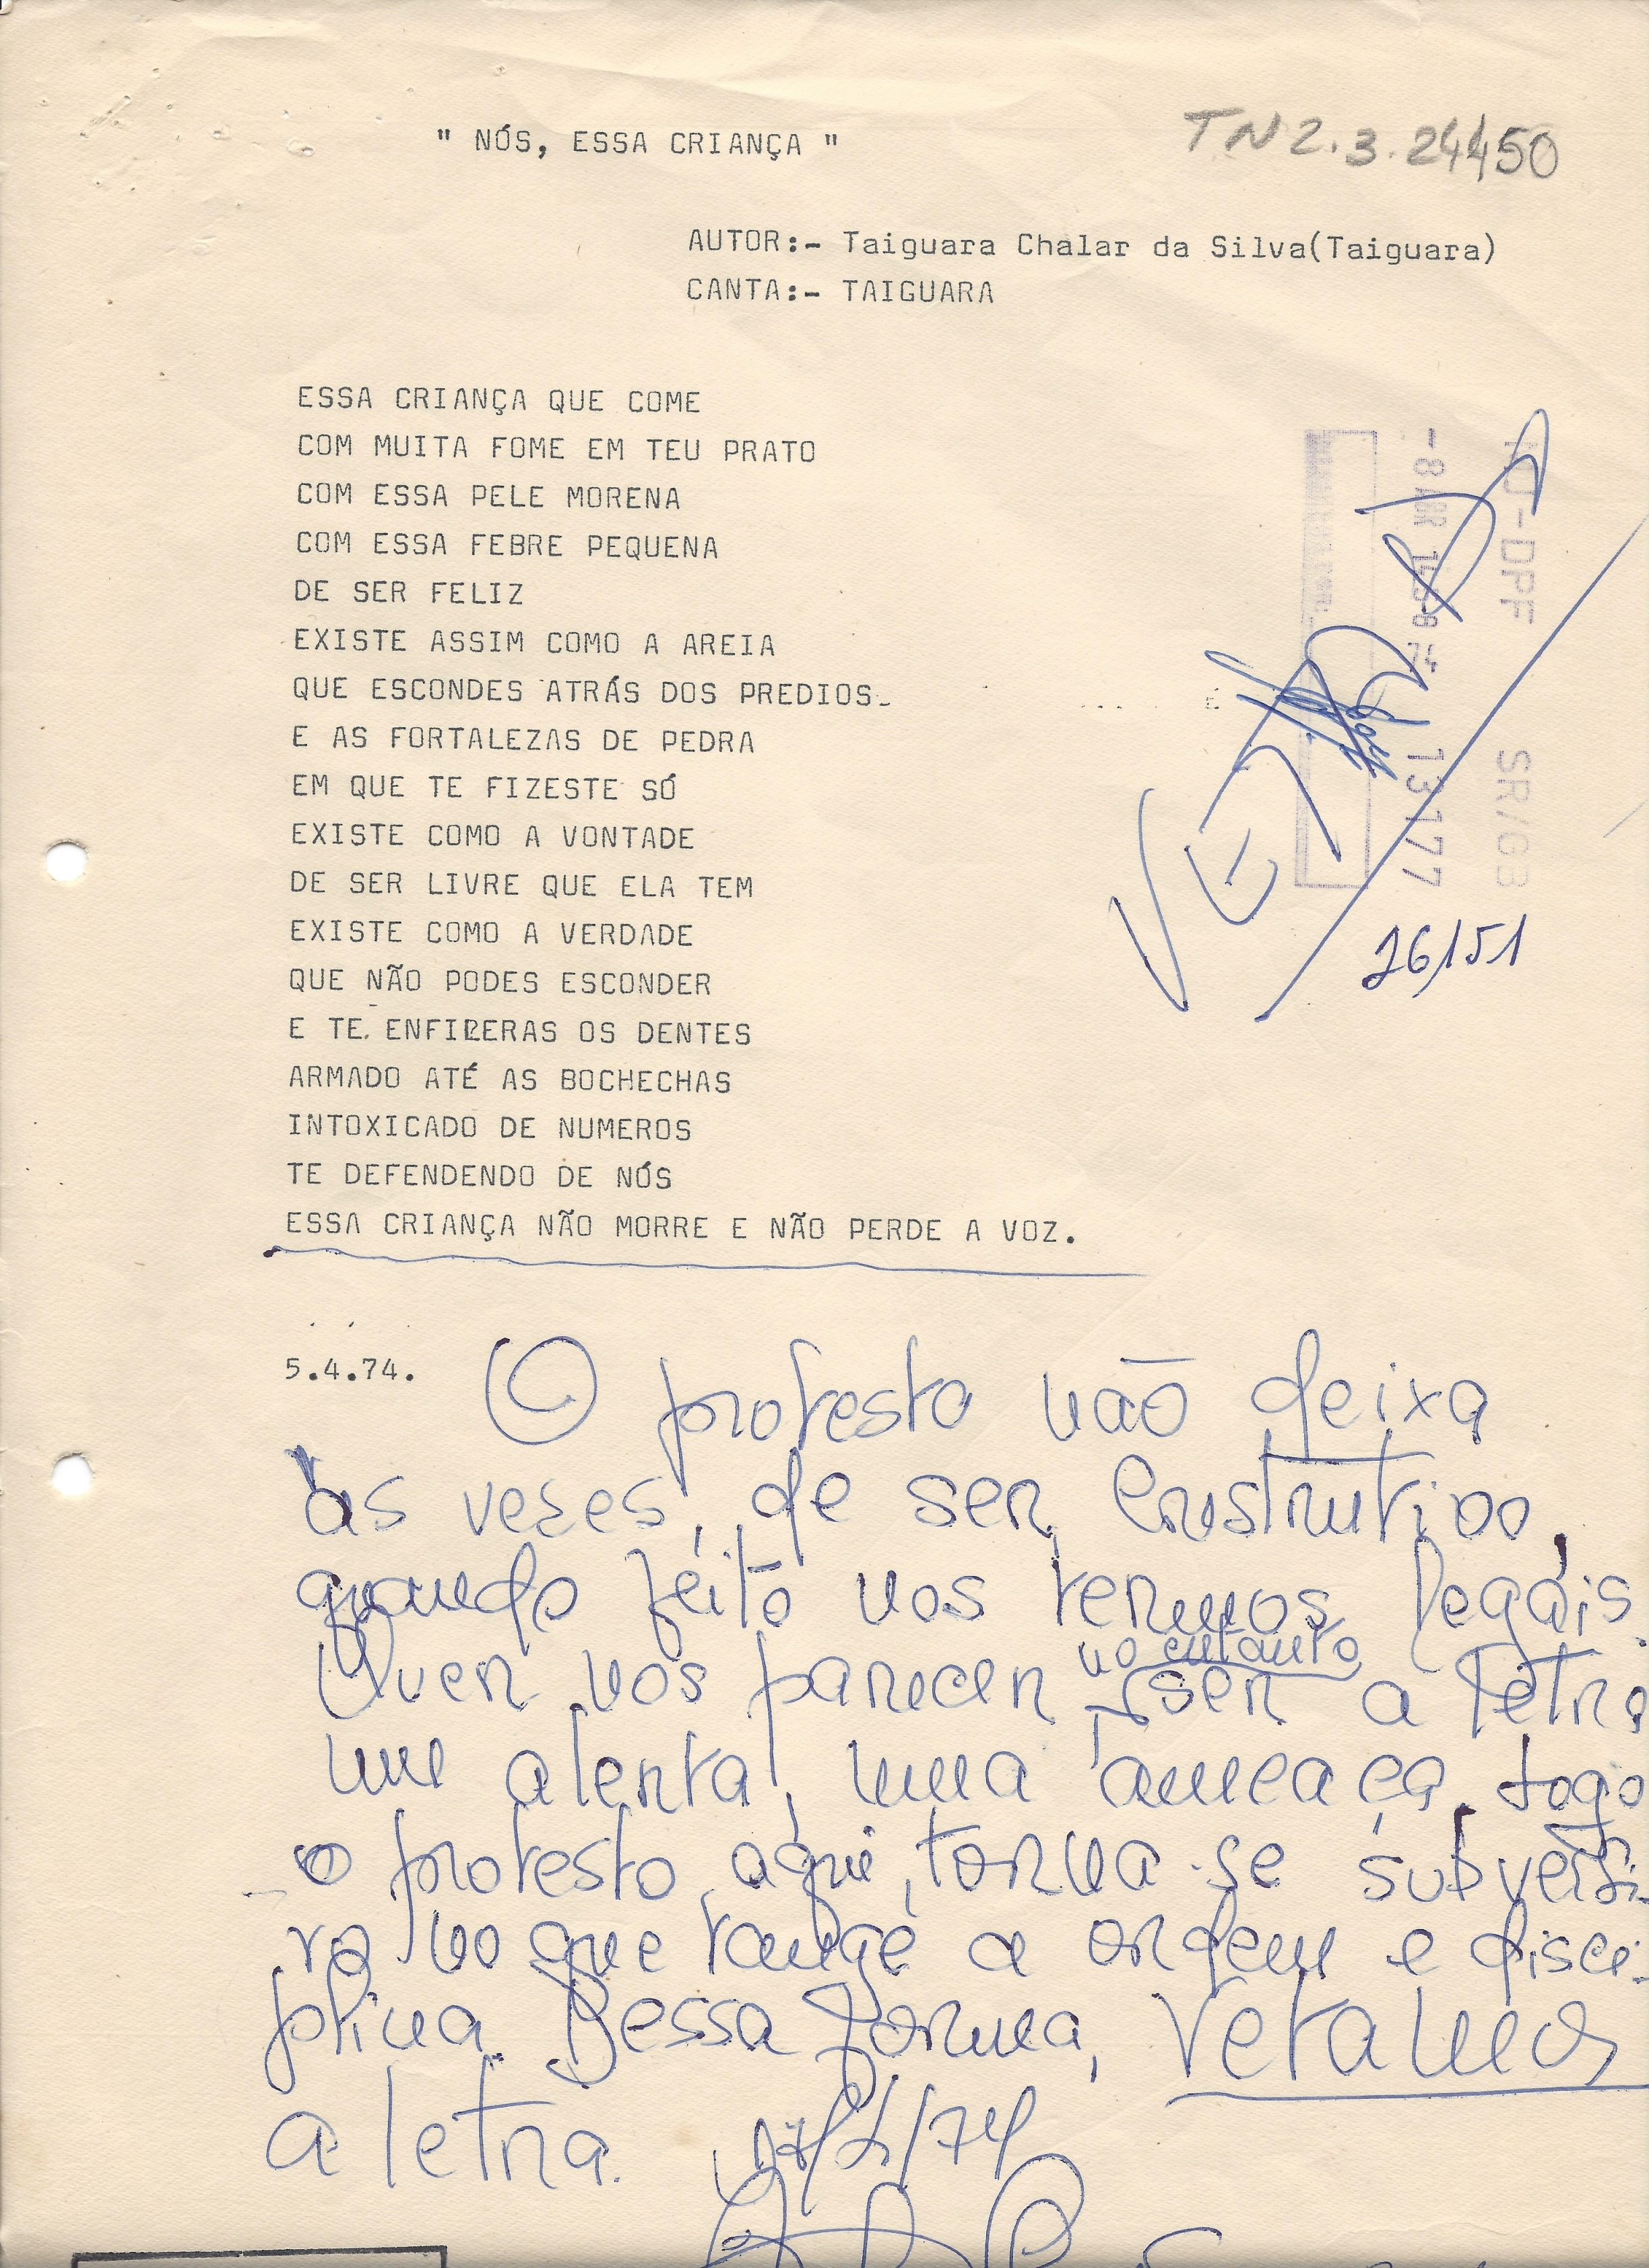 " NÓS, ESSA CRIANÇA "
TN 2.3.24450
AUTOR:- Taiguara Chalar da Silva(Taiguara)
CANTA:- TAIGUARA
ESSA CRIANÇA QUE COME
COM MUITA FOME EM TEU PRATO
COM ESSA PELE MORENA
COM ESSA FEBRE PEQUENA
DE SER FELIZ
EXISTE ASSIM COMO A AREIA
QUE ESCONDES ATRÁS DOS PREDIOS
E AS FORTALEZAS DE PEDRA
EM QUE TE FIZESTE SÓ
EXISTE COMO A VONTADE
DE SER LIVRE QUE ELA TEM
EXISTE COMO A VERDADE
QUE NÃO PODES ESCONDER
E TE ENFILERAS OS DENTES
ARMADO ATÉ AS BOCHECHAS
INTOXICADO DE NUMEROS
TE DEFENDENDO DE NÓS
ESSA CRIANÇA NÃO MORRE E NÃO PERDE A VOZ.
-DPF SR/GB
-8 ABR 74 13177
VETADO
26/151
5.4.74.
O protesto não deixa
às vezes, de ser construtivo,
quando feito nos termos legais.
Quer nos parecer no entanto ser a letra
um alerta, uma ameaça, logo
o protesto aqui, torna-se subversi-
vo no que tange a ordem e disci-
plina. Dessa forma, vetamos
a letra. /74